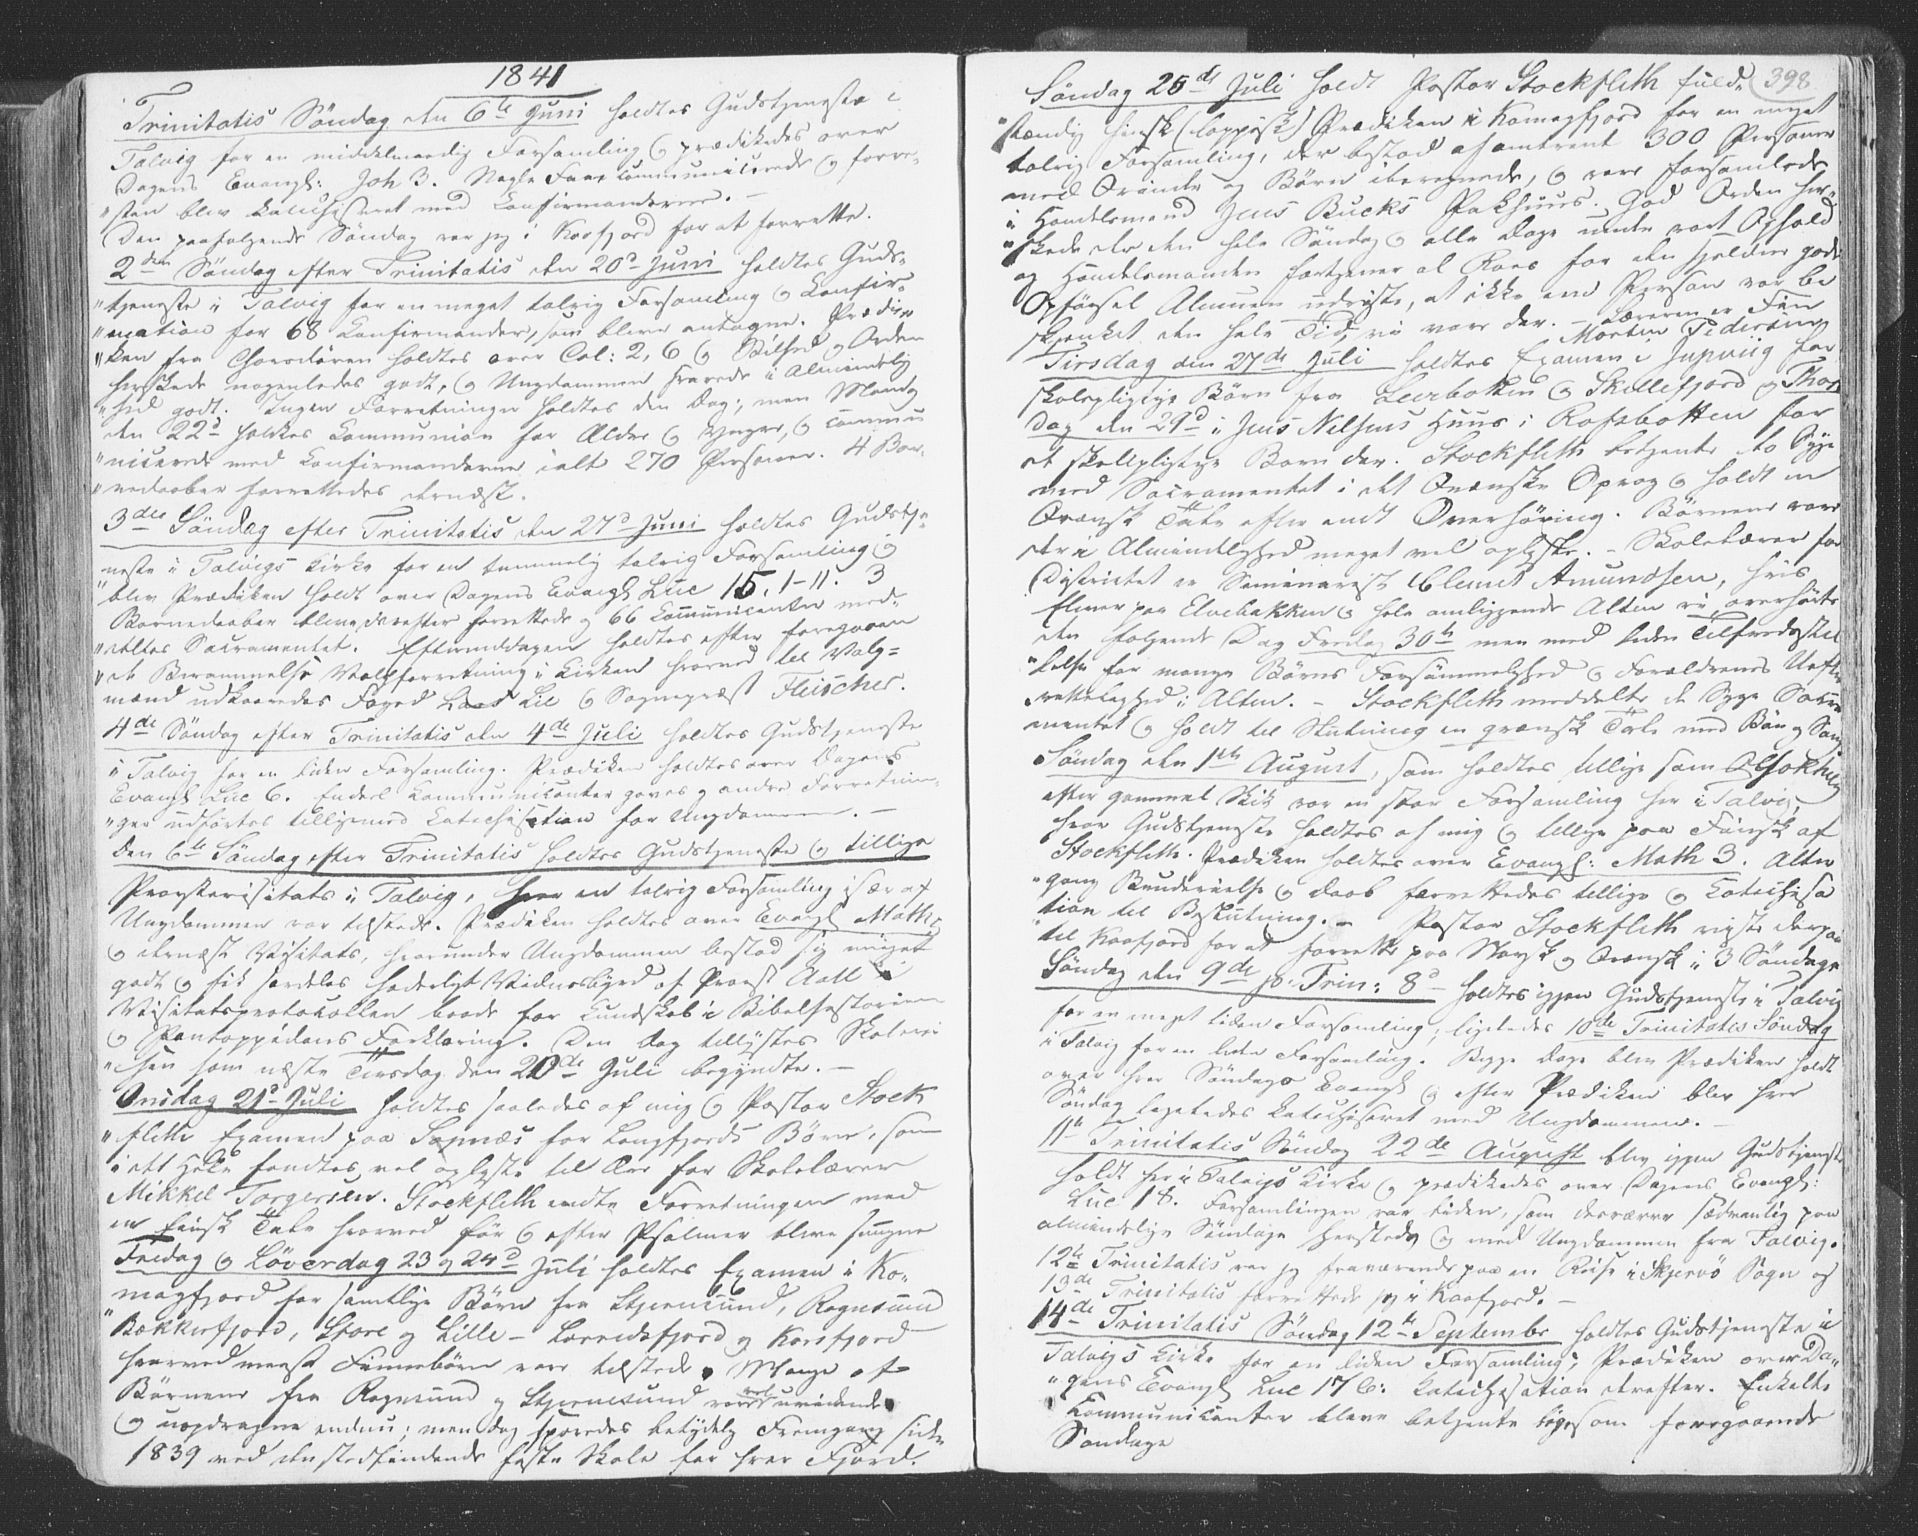 1841
Trinitatis Søndag den 6te Juni holdtes Gudstjeneste i
Talvig for en middelmaadig Forsamling og prædikedes over
Dagens Evangl: Joh 3. Nogle Faae communicerede og forre-
"sten blev katechiseret med Confirmanderne. –
Den paafølgende Søndag var jeg i Kaafjord for at forrette.
2den Søndag efter Trinitatis den 20d Juni holdtes Guds-
"tjeneste i Talvig for en meget talrig Forsamling og Confir-
"mation for 68 Confirmander, som bleve antagne. Prædi-
"ken fra Choredøren holdtes over Col: 2, 6 og Stilhed og Orden
herskede nogenledes godt, og Ungdommen svarede i Almindelig
"hed godt. Ingen Forretninger holdtes den Dag; men Mandag
den 22d holdtes Communion for Ældre og Yngre, og commu
"nicerede med Confirmanderne ialt 270 Personer. 4 Bar-
"nedaaber forrettedes dernæst.
3die Søndag efter Trinitatis den 27d Juni holdtes Gudstje-
"neste i Talvigs Kirke for en temmelig talrig Forsamling og
blev Prædiken holdt over Dagens Evangl Luc 15, 1-11. 3
Barnedaaber bleve derefter forrettede og 66 Communicanter med-
"deltes Sacramentet. Eftermiddagen holdtes efter foregaaen
"de Berammelse Valgforretning i Kirken hvorved til Valg-
mænd udkaaredes Foged Lie og Sognepræst Fleischer.
4de Søndag efter Trinitatis den 4de Juli holdtes Gudstjeneste
i Talvig for en liden Forsamling. Prædiken holdtes over Dagens
Evangl Luc 6. Endeel Communicanter gaves og andre Forretnin-
"ger udførtes tilligemed Catechisation for Ungdommen. –
Den 6te Søndag efter Trinitatis holdtes Gudstjeneste og tillige
Provstevisitats i Talvig, hvor en talrig Forsamling især af
Ungdommen var tilstede. Prædiken holdtes over Evangl Math:
og dernæst Visitats, hvorunder Ungdommen bestod sig meget
godt og fik særdeles hæderligt Vidnesbyrd af Provst Aall i
Visitatsprotocollen baade for Kundskab i Bibelhistorien
og Pontoppidans Forklaring. Den Dag tillystes Skolevi
"sen som næste Tirsdag den 20de Juli begyndte. –
Onsdag 21d Juli holdtes saaledes af mig og Pastor Stock
"fleth Examen paa Sopnæs for Langfjords Børn, som
i det Hele fandtes vel oplyste til Ære for Skolelærer
Mikkel Torgersen. Stockfleth endte Forretningen med
en finsk Tale hvorved før og efter Psalmer bleve sungne
Fredag og Løverdag 23 og 24d Juli holdtes Examen i Ko-
magfjord for samtlige Børn fra Stjernsund, Rognsund
"Bekkerfjord, Store og Lille – Lerredsfjord og Korsfjord
hvorved meest Finnebørn vare tilstede. Mange af
Børnene fra Rognsund og Stjernsund vare vel uvidende
og uopdragne endnu; men dog sporedes betydelig Fremgang siden
1839 ved den stedfindende faste Skole for hver Fjord.
398
Søndag 25de Juli holdt Pastor Stockfleth fuld-
"stændig finsk (lappisk) Prædiken i Komagfjord for en meget
talrig Forsamling, der bestod af omtrent 300 Personer
med Qvinder og Børn iberegnede, og vare forsamlede
i Handelsmand Jens Bucks Pakhuus. God Orden her-
"skede der den hele Søndag og alle Dage under vort Ophold
og Handelsmanden fortjener al Roes for den sjeldne gode
Opførsel Almuen udviste, at ikke een Person var be
skjenket den hele Tid, vi vare der. – Læreren er Fin
Morten Pedersen
Tirsdag den 27de Juli holdtes Examen i Jupviig for
skolepligtige Børn fra Leerbotten og Skillefjord og Thors
dag den 29d i Jens Nilsens Huus i Rafsbotten for
de skolepligtige Børn der. Stockfleth betjente to Syge
med Sacramentet i det Qvænske Sprog og holdt en
Qvænsk Tale efter endt Overhøring. Børnene vare
der i Almindelighed meget vel oplyste. – Skolelærer for
Districtet er Seminarist Clemet Amundsen, hvis
Elever paa Elvebakken og hele omliggende Alten vi overhørte
den følgende Dag Fredag 30te men med liden Tilfredsstil
"lelse for mange Børns Forsømmelighed og Forældrenes Uefter
rettelighed i Alten. – Stockfleth meddelte de Syge Sacra
mentet og holdt til Slutning en qvænsk Tale med Bøn og Sang
Søndag den 1ste August, som holdtes tillige som Olsokhelg
efter gammel Skik var en stor Forsamling her i Talvig,
hvor Gudstjeneste holdtes af mig og tillige paa Finsk af
Stockfleth. Prædiken holdtes over Evangl: Math 3. Alter
"gang Brudevielse og Daab forrettedes tillige og Catechisa
tion til Beslutning. – Pastor Stockfleth reiste derpaa
til Kaafjord for at forrette paa Norsk og Qvænsk i 3 Søndage
Søndag den 9de p. Trin: 8d holdtes igjen Gudstjeneste i Talvig
for en meget liden Forsamling; ligeledes 10de Trinitatis Søndag
i Talvig for en liden Forsamling. Begge Dage blev Prædiken holdt
over hver Søndags Evangl og efter Prædiken blev hver
Søndag ligeledes katechiseret med Ungdommen. –
11te Trinitatis Søndag 22de August blev igjen Gudstjeneste
holdt her i Talvigs Kirke og prædikedes over Dagens Evangl:
Luc 18. Forsamlingen var liden, som desværre sædvanlig paa
almindelige Søndage herstedes og med Ungdommen fra Talvig.
12te Trinitatis var jeg fraværende paa en Reise i Skjervø Sogn og
13de Trinitatis forrettede jeg i Kaafjord. –
14de Trinitatis Søndag 12te Septembr holdtes Gudstjeneste i
Talvigs Kirke for en liden Forsamling, Prædiken over Da-
"gens Evangl Luc 17 C: Catechisation derefter. Enkelte
Communicanter bleve betjente ligesom foregaaende
Søndage